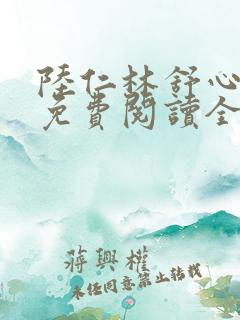 陸仁林舒心
免費閱讀全
蔣興權
未任同意禁止轉載